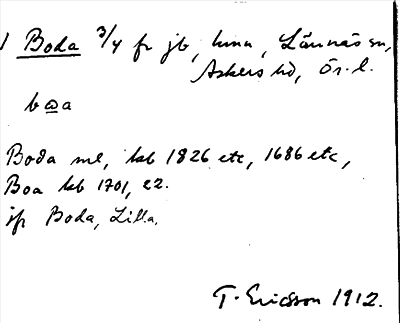 1 Boda 3/4 fr jb, hmn, Lännäs sn,
Askers hd, Ör. l.
bωa
Boda ml, kb 1826 etc, 1686 etc,
Boa kb 1701, 22.
jfr Boda, Lilla.
T. Ericsson 1912.